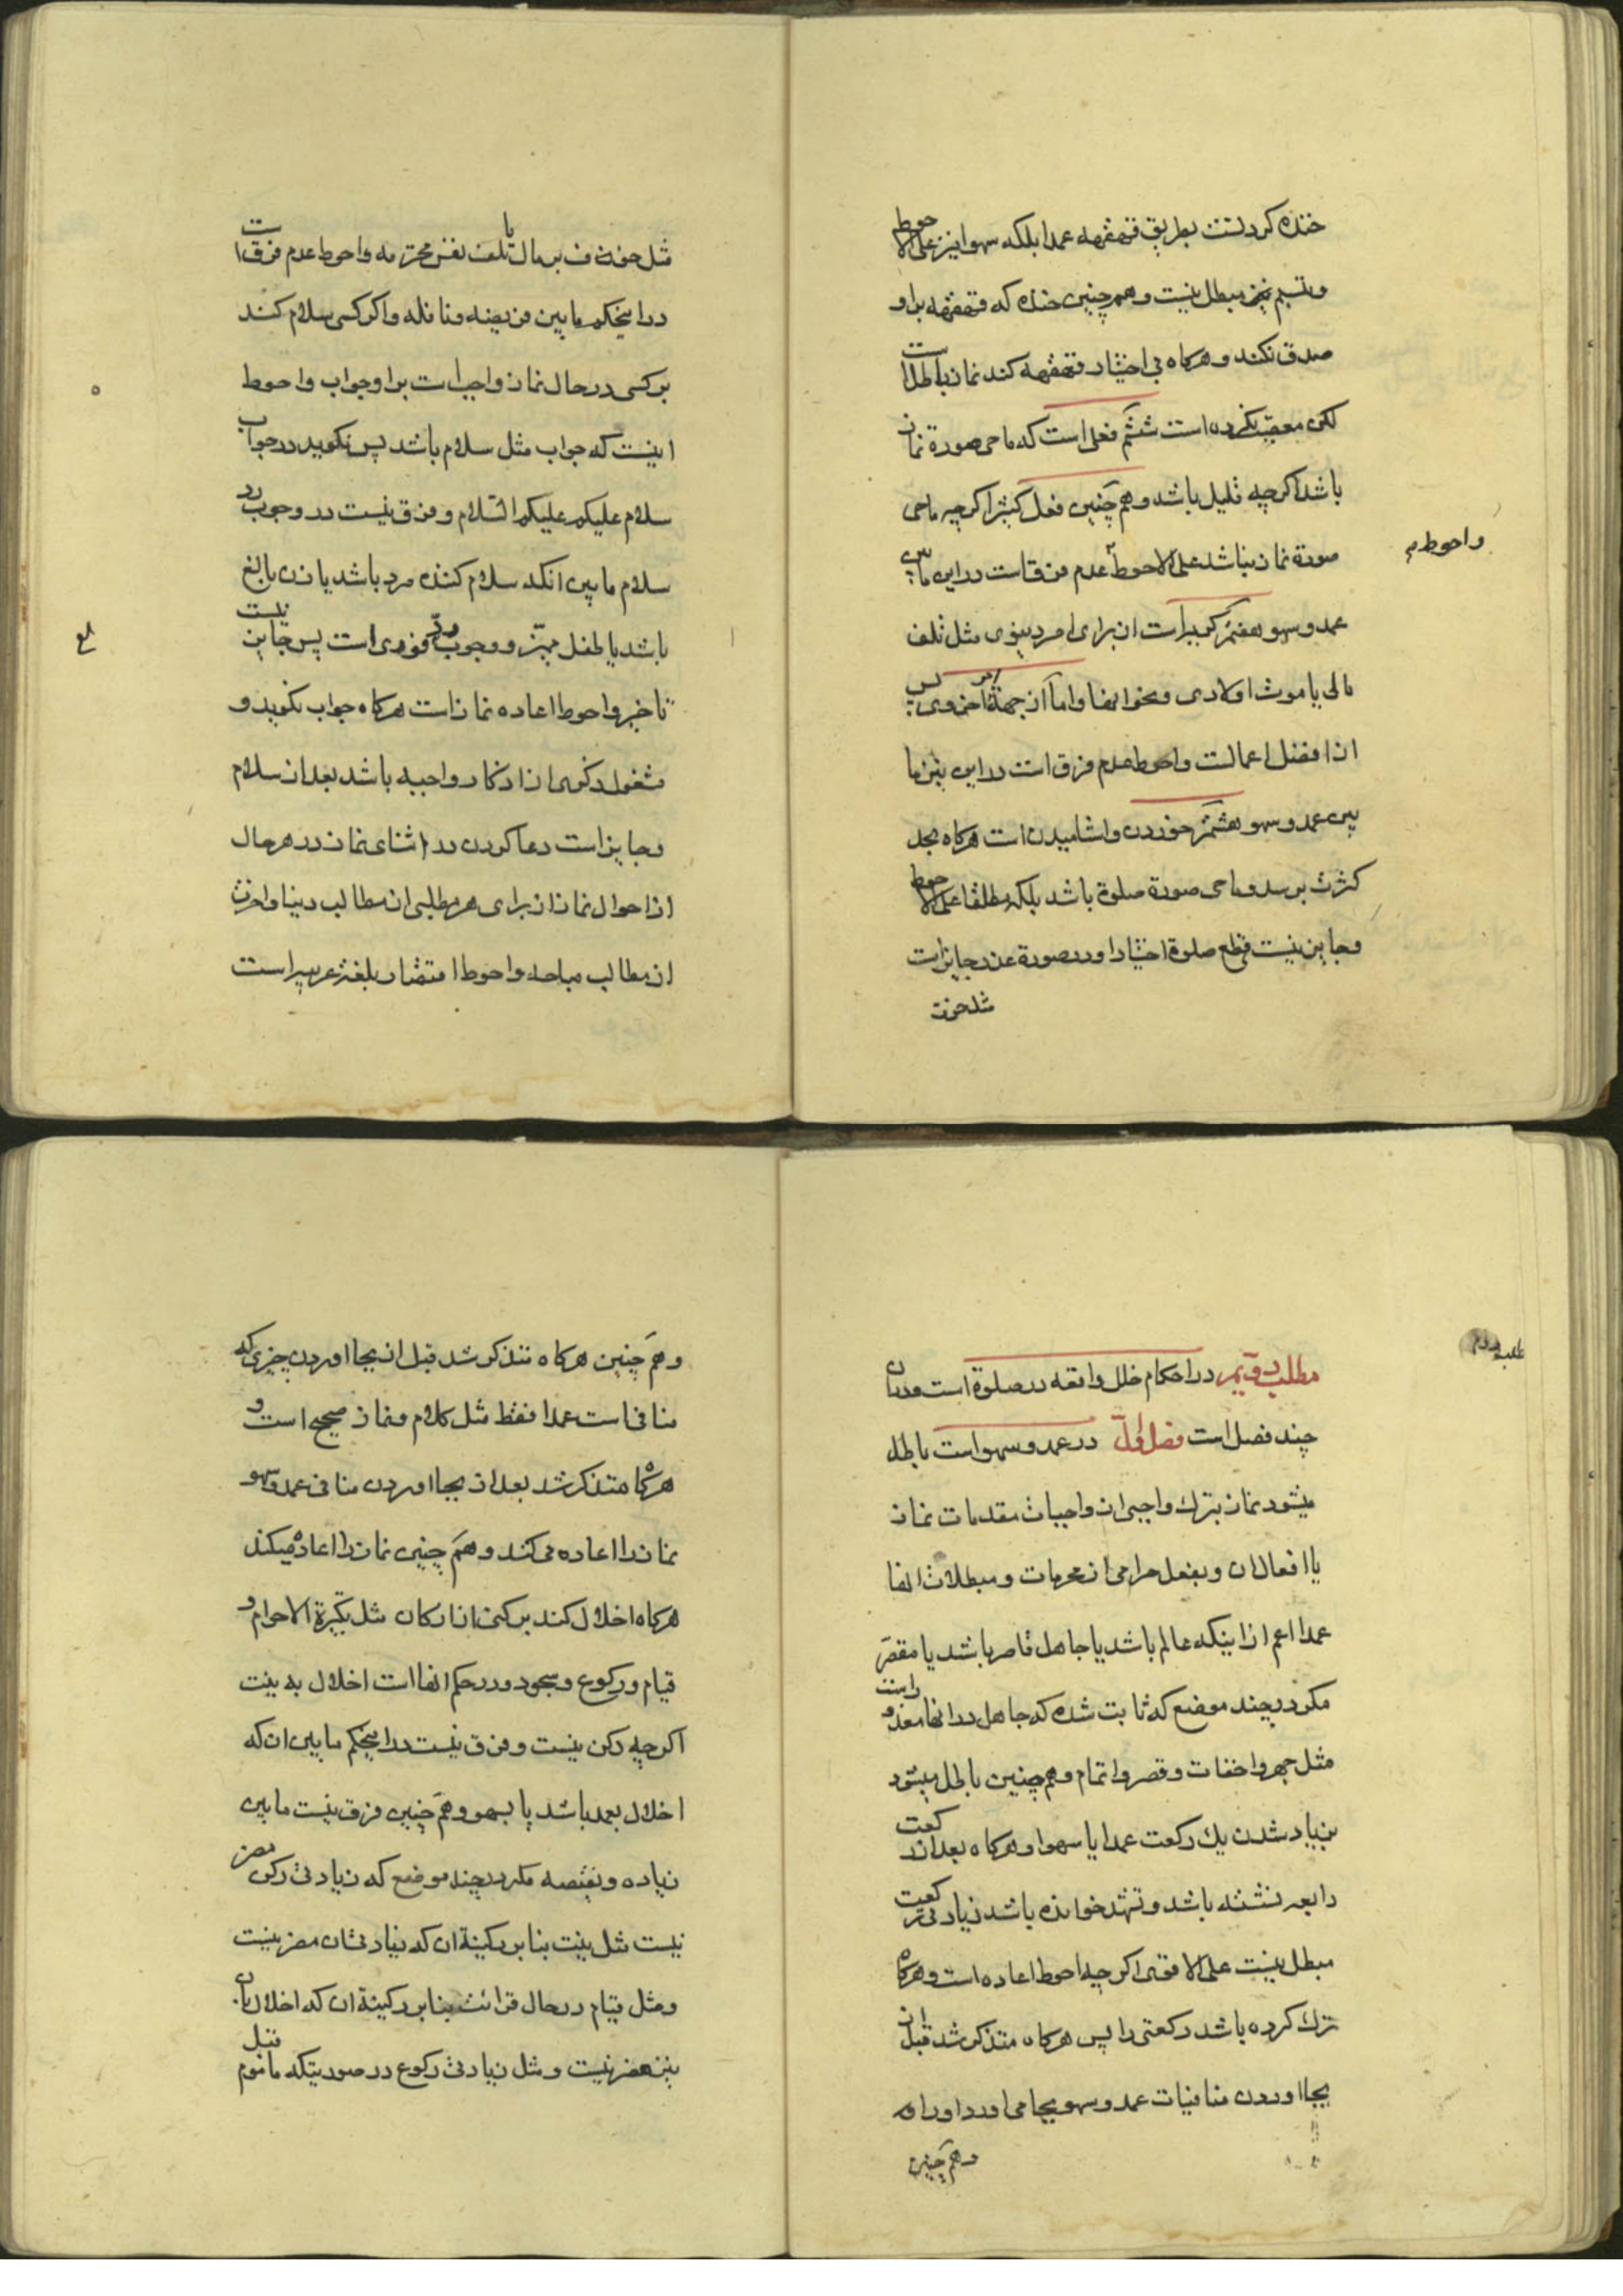 خنده کردنست بطریق قهقهه عمدا بلکه سهوا نیز علی الاحوط
و تبسم نیز مبطل نیست و هم چنین خنده که قهقهه بر او
صدق نکند و هرکاه بی اختیار قهقهه کند نماز باطل است
لکن معصیت نکرده است ششم فعلی است که ماحی صورة نماز
باشد اکرچه قلیل باشد و هم چنین فعل کثیر اکرچه ماحی
صورة نماز نباشد علی الاحوط عدم فرق است در این مابین
و احوط م
عمد و سهو هفتم کریه است از برای امر دنیوی مثل تلف
مالی یا موت اولادی و نحو انها و اما از جهة امر اخروی پس
از افضل اعمالست و احوط عدم فرق است در این نیز ما
بین عمد و سهو هشتم خوردن و اشامیدن است هرکاه بحد
کثرت برسد و ماحی صورة صلوة باشد بلکه مطلقا علی الاحوط
و جایز نیست قطع صلوة اختیارا و در صورة عذر جایز است
مثل خوف
مثل خوف بر مال یا تلف نفس محترمه و احوط عدم فرق است
در اینحکم ما بین فریضه و نافله و اکر کسی سلام کند
بر کسی در حال نماز واجب است بر او جواب و احوط
اینست که جواب مثل سلام باشد پس نکوید در جواب
سلام علیکم علیکم السلام و فرق نیست در وجوب رد
سلام مابین انکه سلام کننده مرد باشد یا زن بالغ
باشد یا طفل ممیّز و وجوب ردّ فوری است پس جایز نیست
تاخیر و احوط اعاده نماز است هرکاه جواب نکوید و
مشغول ذکری از اذکار واجبه باشد بعد از سلام
و جایز است دعا کردن در اثنای نماز در هر حال
از احوال نماز از برای هر مطلبی از مطالب دنیا و اخرت
از مطالب مباحه و احوط اقتصار بلغة عربیه است
مطلب دویم در احکام خلل واقعه در صلوة است و در ان
مطلب دوم
چند فصل است فصل اوّل در عمد و سهو است باطل
میشود نماز بترک واجبی از واجبات مقدمات نماز
یا افعال ان و بفعل حرامی از محرمات و مبطلات انها
عمدا اعم از اینکه عالم باشد یا جاهل قاصر باشد یا مقصّر
مکر در چند موضع که ثابت شده که جاهل در انها معذور است
مثل جهر و اخفات و قصر و اتمام و هم چنین باطل میشود
بزیاد شدن یک رکعت عمدا یا سهوا و هرکاه بعد از رکعت
رابعه نشسته باشد و تشهد خوانده باشد زیادتی رکعت
مبطل نیست علی الاقوی اکرچه احوط اعاده است و هرکاه
ترک کرده باشد رکعتی را پس هرکاه متذکر شد قبل از
بجا اوردن منافیات عمد و سهو بجا می اورد او را و
و هم چنین
و هم چنین هرکاه متذکر شد قبل از بجا اوردن چیزی که
منافی است عمدا فقط مثل کلام و نماز صحیح است و
هرکاه متذکر شد بعد از بجا اوردن منافی عمد و سهو
نماز را اعاده می کند و هم چنین نماز را اعاده میکند
هرکاه اخلال کند برکنی از ارکان مثل تکبیرة الاحرام و
قیام و رکوع و سجود و در حکم انها است اخلال به نیت
اکرچه رکن نیست و فرق نیست در اینحکم مابین ان که
اخلال بعمد باشد یا بسهو و هم چنین فرق نیست مابین
زیاده و نقیصه مکر در چند موضع که زیادتی رکن مضر
نیست مثل نیت بنا بر رکنیة ان که زیادتی ان مضر نیست
و مثل قیام در حال قرائت بنا بر رکنیة ان که اخلال بان
نیز مضر نیست و مثل زیادتی رکوع در صورتیکه ماموم قبل